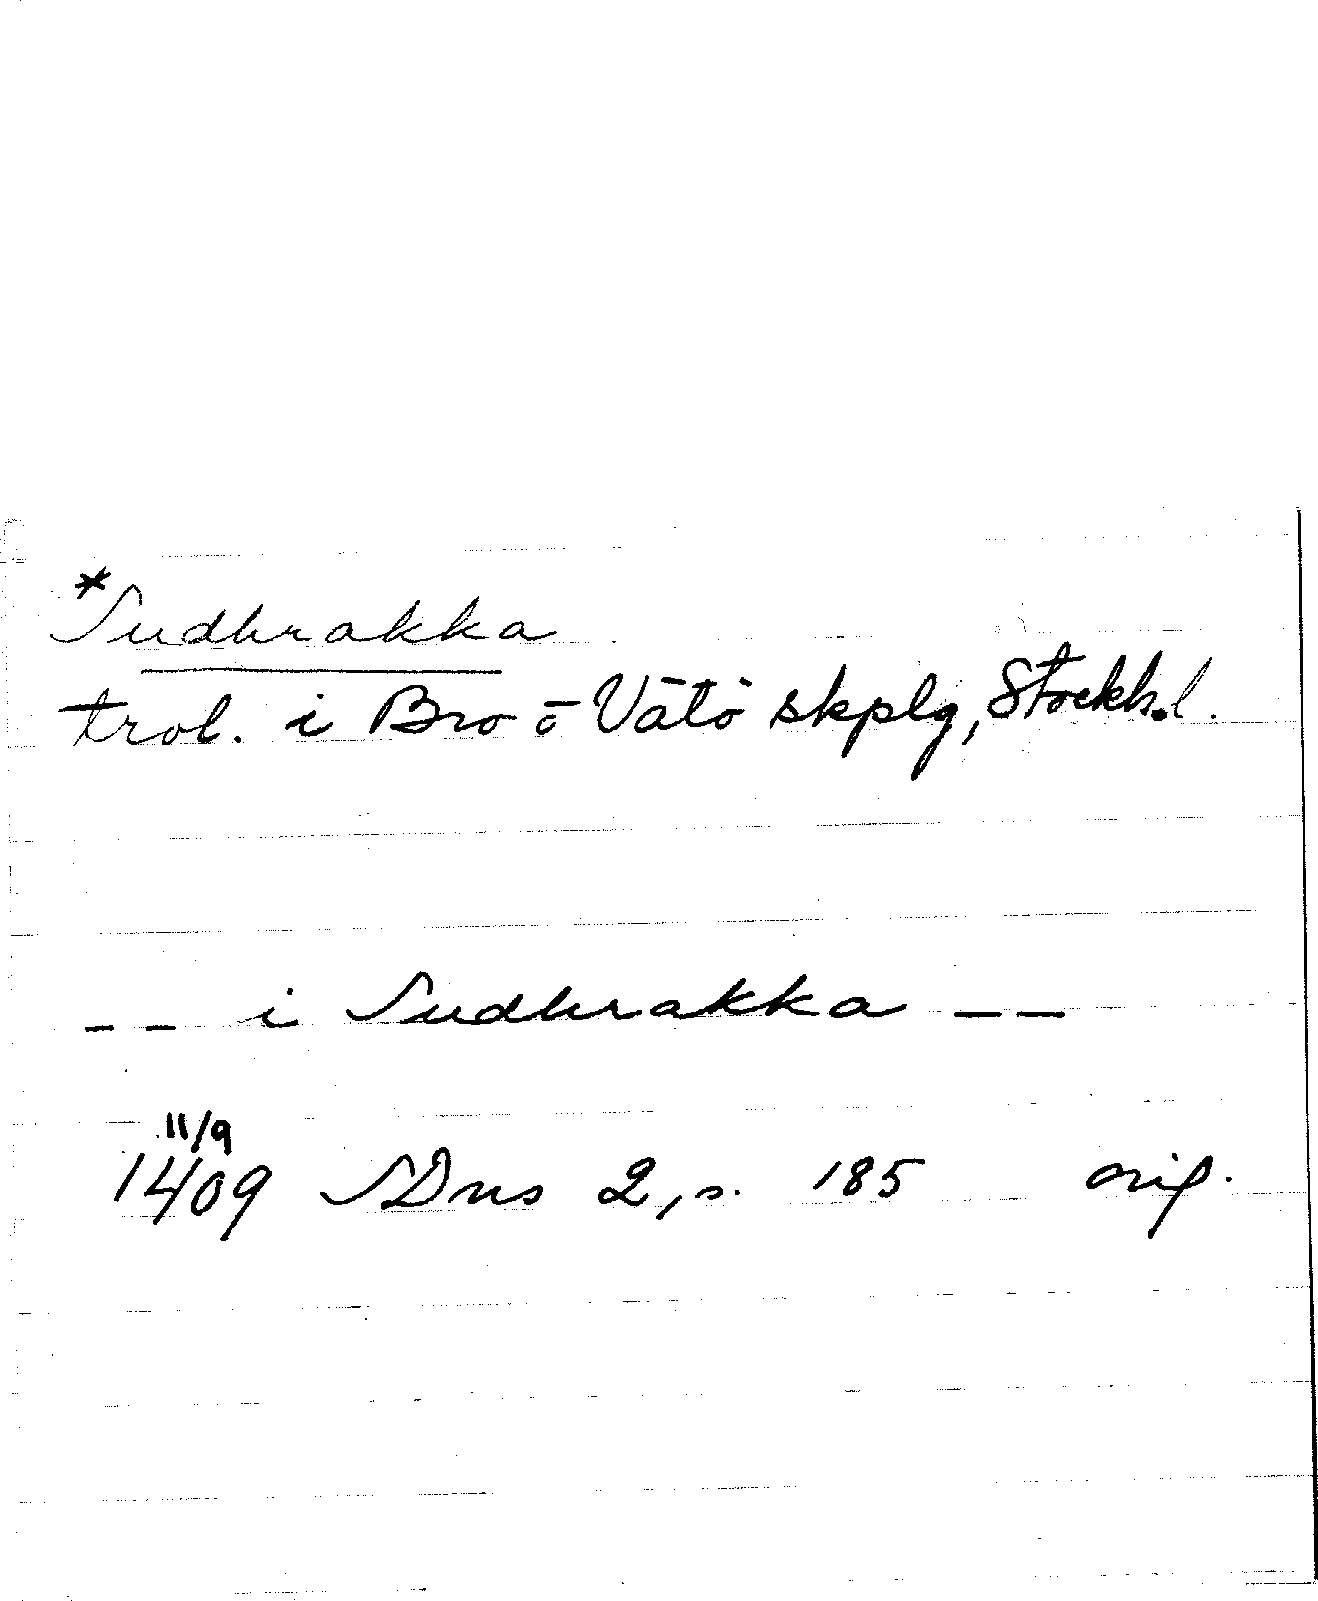 *Sudhrakka
trol. i Bro o Vätö skplg, Stockh.l.
-- i Sudhrakka --
11/9
1409 SDns 2, s. 185 orig.